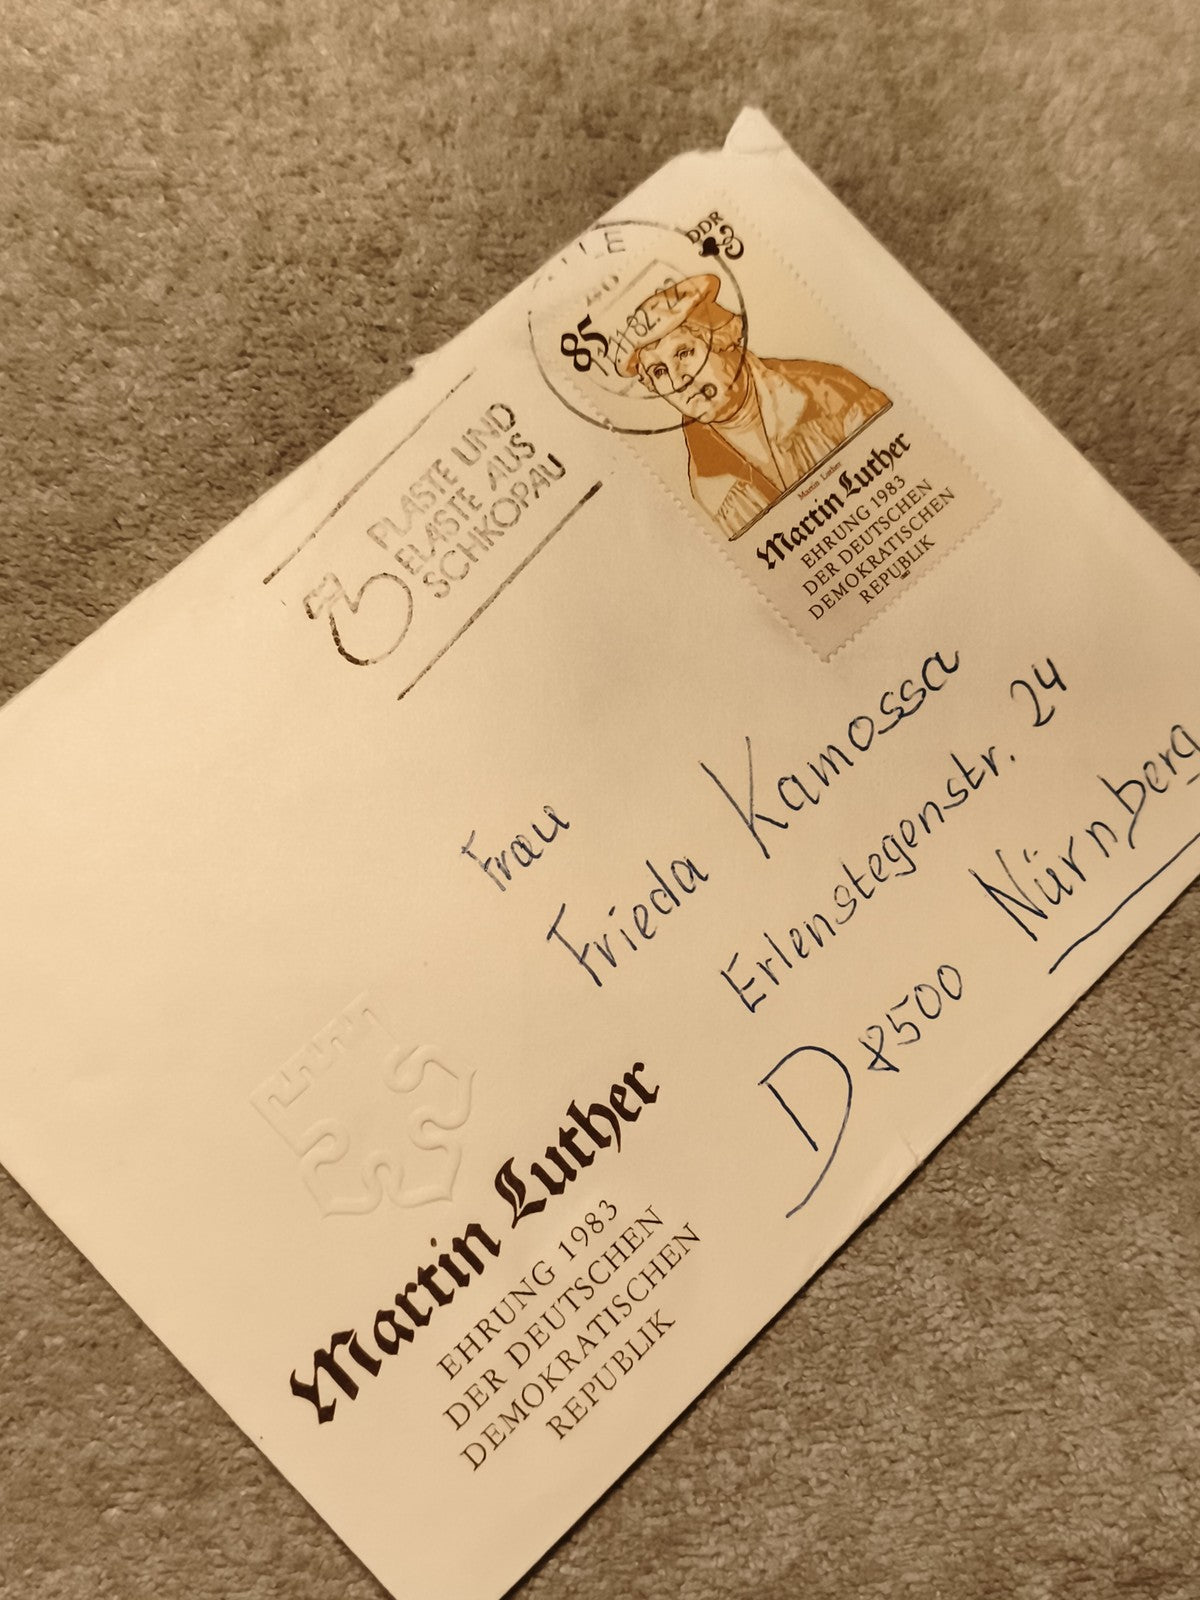 DDR
85
PLASTE UND
ELASTE AUS
SCHKOPAU
Martin Luther
Martin Luther
EHRUNG 1983
DER DEUTSCHEN
DEMOKRATISCHEN
REPUBLIK
Frau
Frieda Kamossa
Erlenstegenstr. 24
D 8500 Nürnberg
Martin Luther
EHRUNG 1983
DER DEUTSCHEN
DEMOKRATISCHEN
REPUBLIK